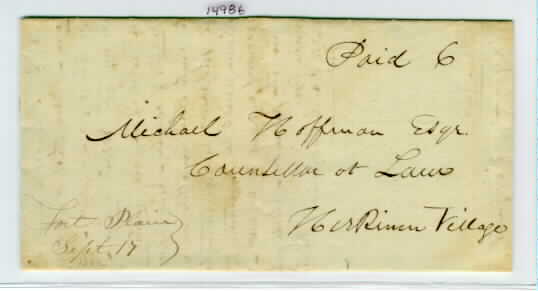 14986
Paid 6
Michael Hoffman Esqr.
Counsellor at Law
Herkimer Village
Fort Plain
Sept. 17